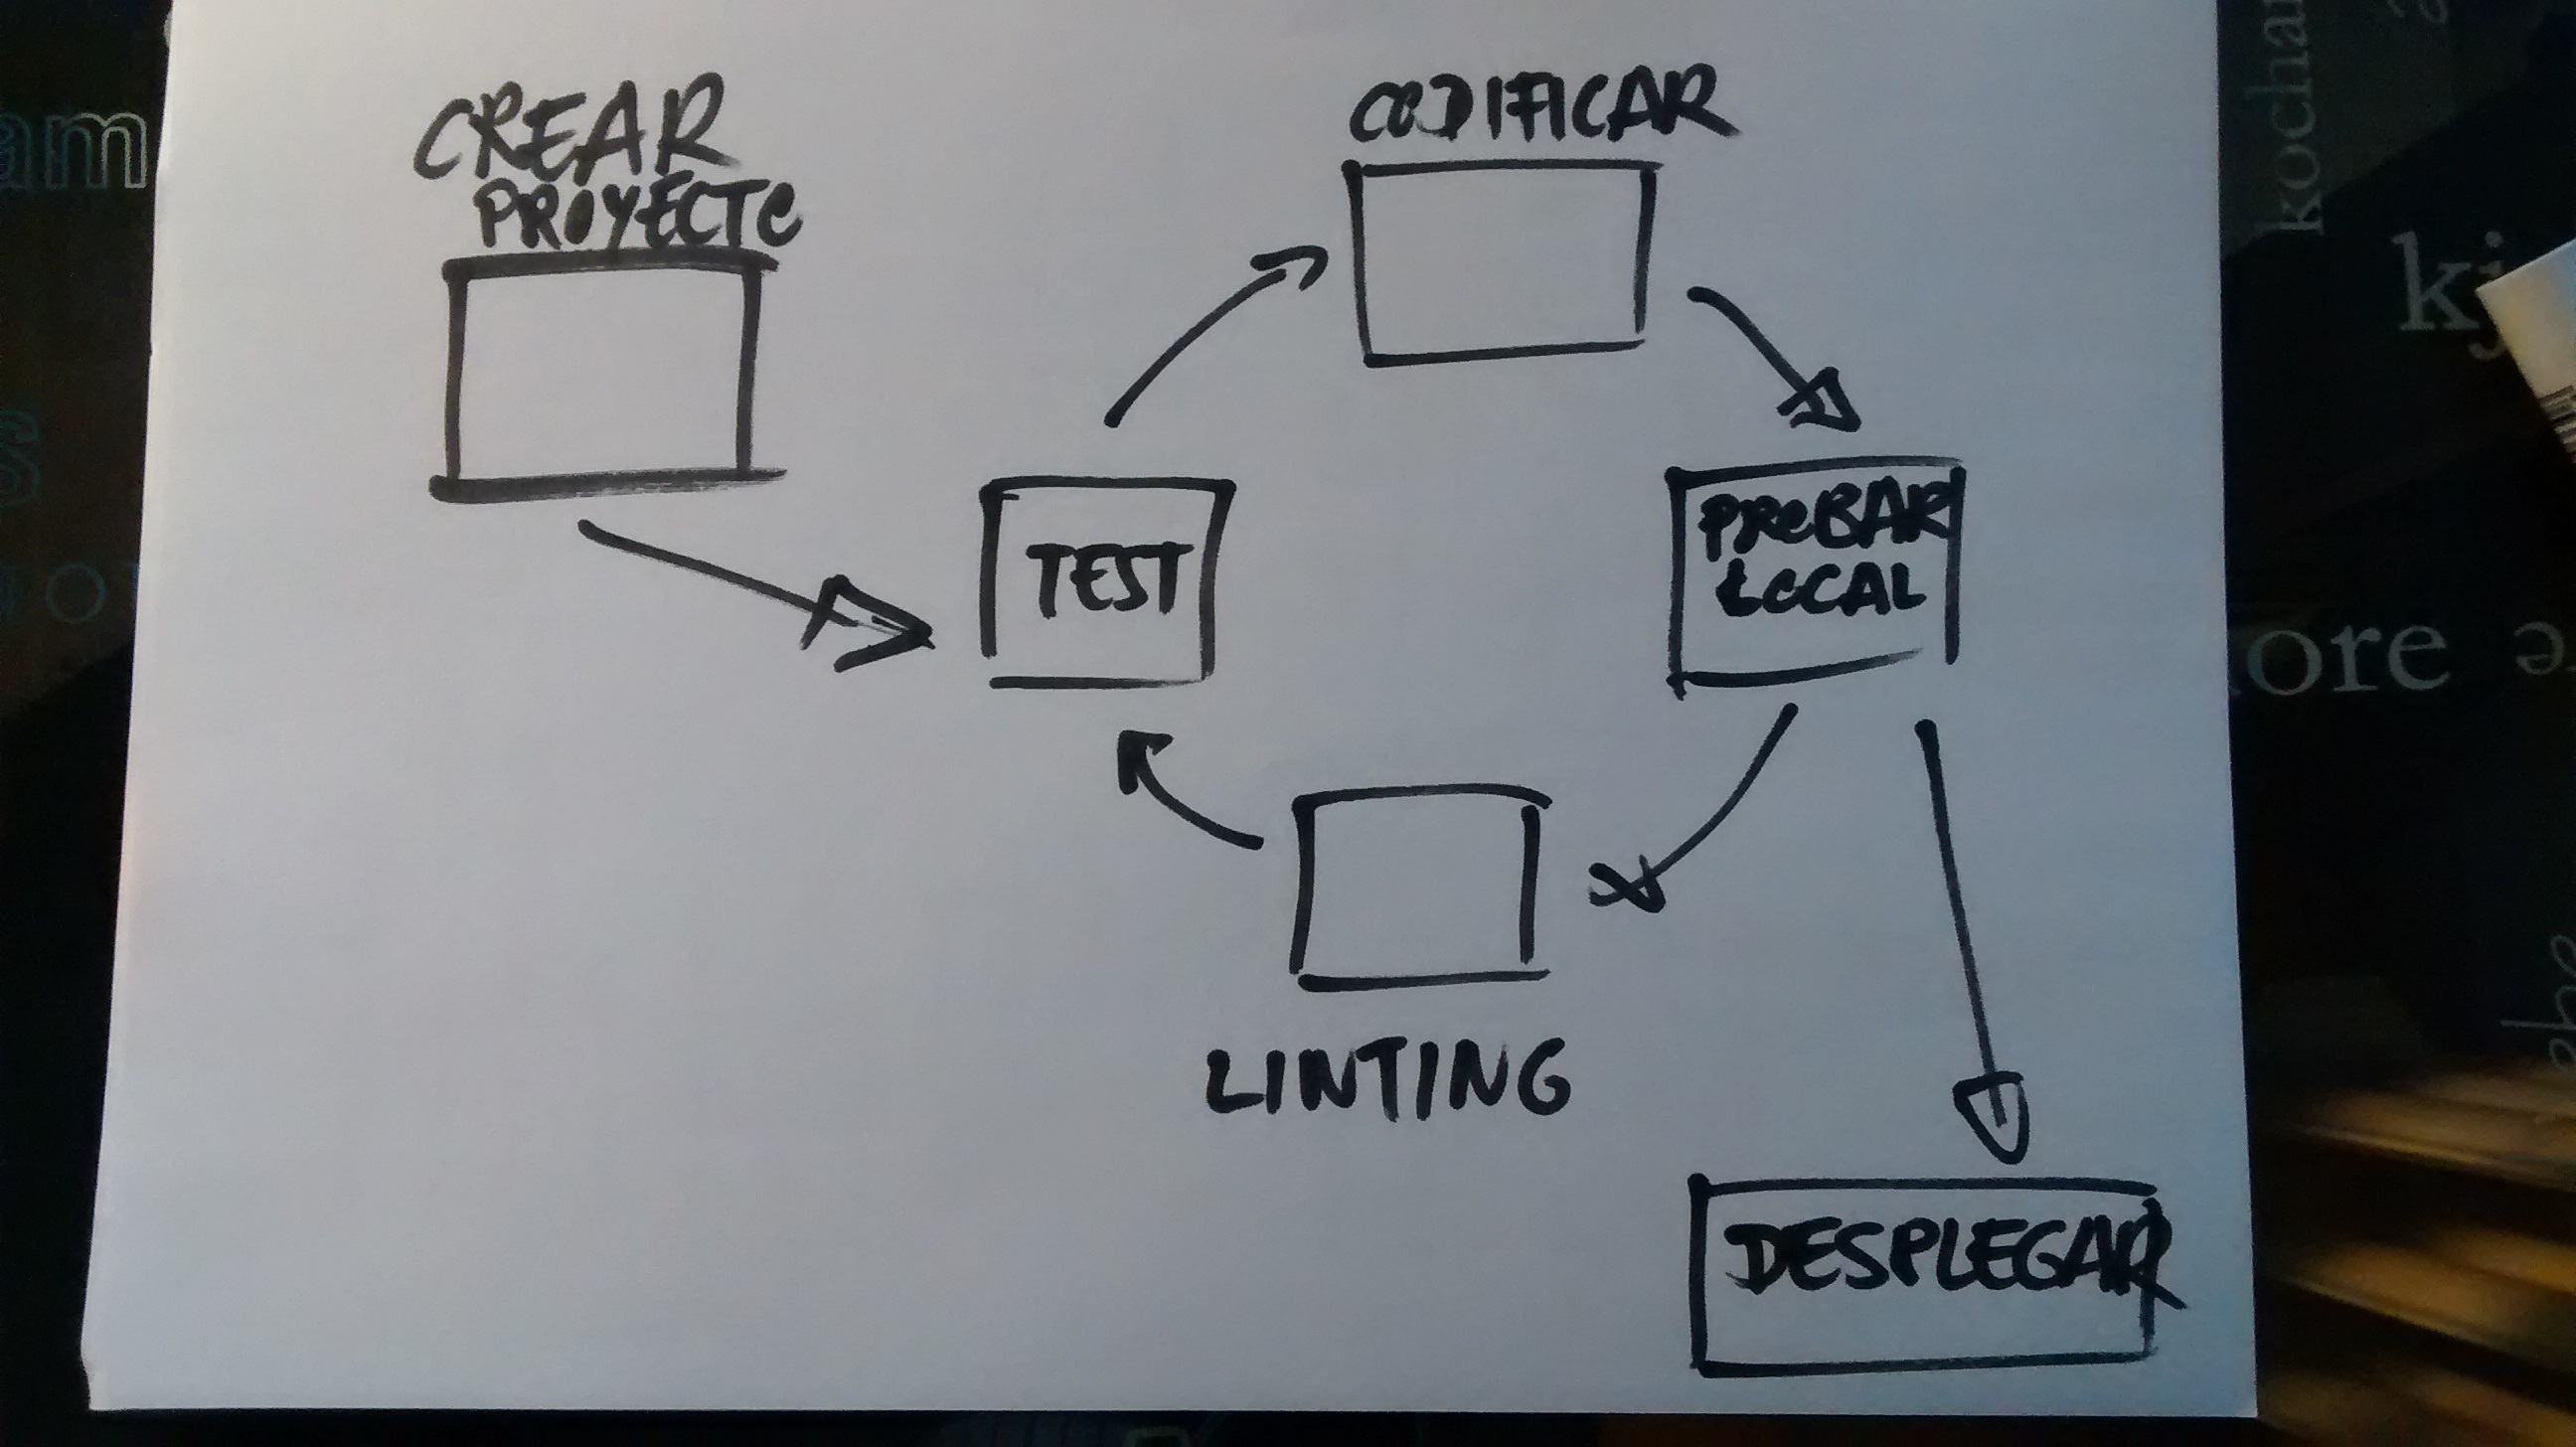 CREAR
PROYECTO
CODIFICAR
TEST
PROBAR
LOCAL
LINTING
DESPLEGAR
am
kochar
kj
ore